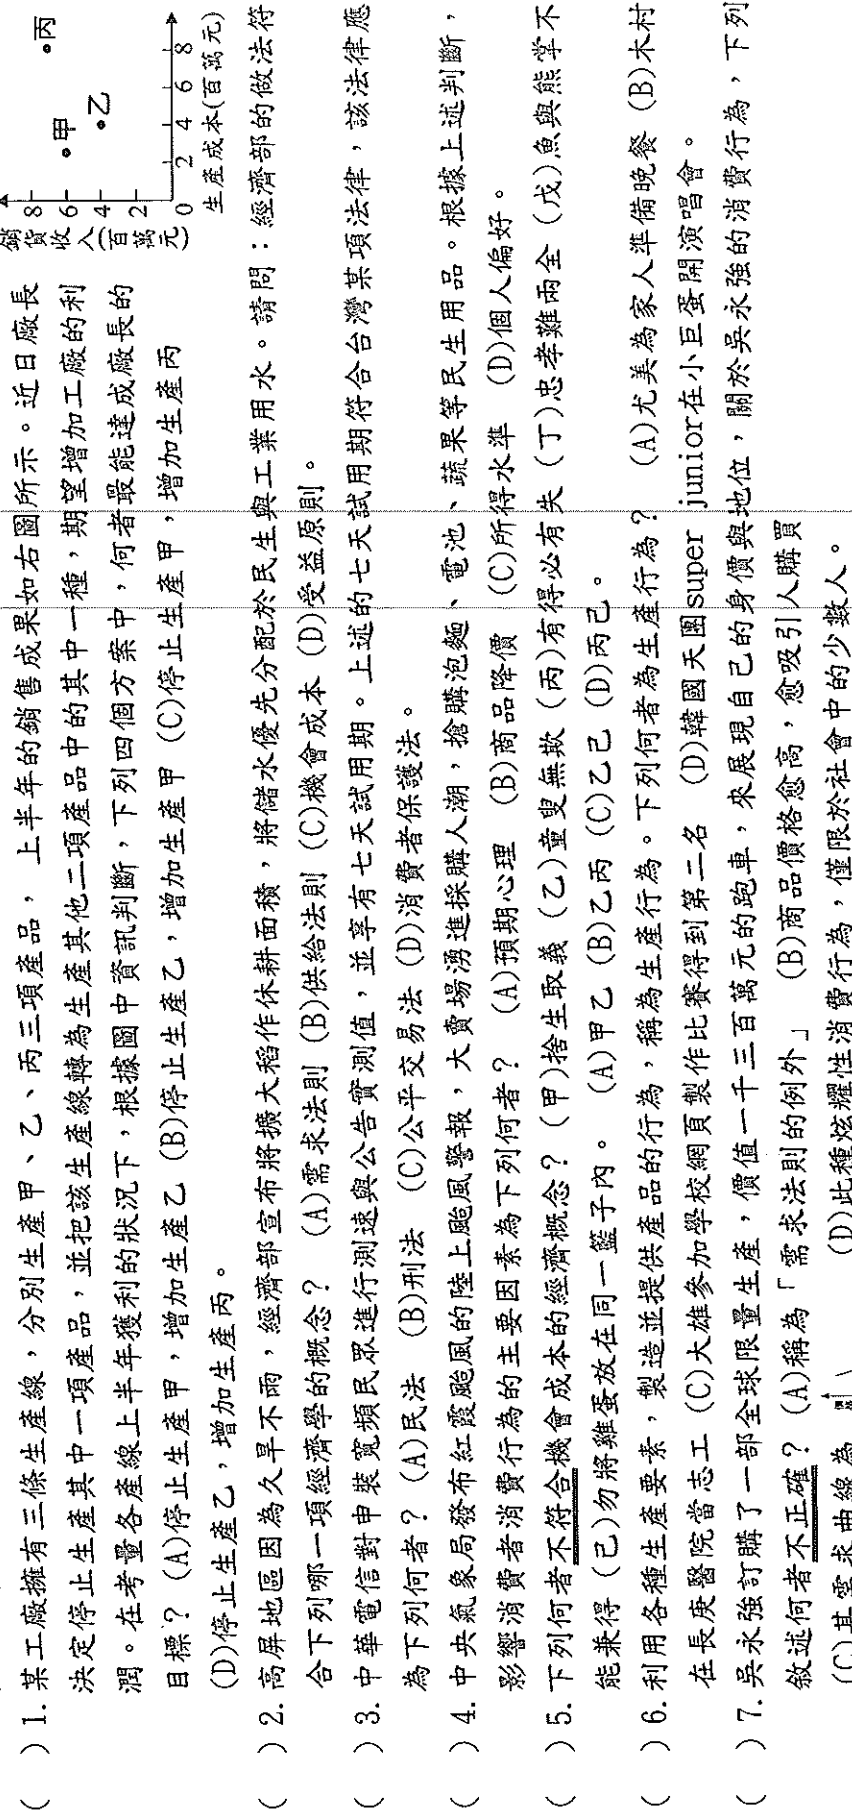 ( ) 1. 某工廠擁有三條生產線，分別生產甲、乙、丙三項產品，上半年的銷售成果如右圖所示。近日廠長
決定停止生產其中一項產品，並把該生產線轉為生產其他二項產品中的其中一種，期望增加工廠的利
潤。在考量各產線上半年獲利的狀況下，根據圖中資訊判斷，下列四個方案中，何者最能達成廠長的
目標？ (A)停止生產甲，增加生產乙 (B)停止生產乙，增加生產甲 (C)停止生產甲，增加生產丙
(D)停止生產乙，增加生產丙。
銷貨收入(百萬元)
8
6
4
2
0 2 4 6 8
生產成本(百萬元)
甲
乙
丙
( ) 2. 高屏地區因為久旱不雨，經濟部宣布將擴大稻作休耕面積，將儲水優先分配於民生與工業用水。請問：經濟部的做法符
合下列哪一項經濟學的概念？ (A)需求法則 (B)供給法則 (C)機會成本 (D)受益原則。
( ) 3. 中華電信對申裝寬頻民眾進行測速與公告實測值，並享有七天試用期。上述的七天試用期符合台灣某項法律，該法律應
為下列何者？ (A)民法 (B)刑法 (C)公平交易法 (D)消費者保護法。
( ) 4. 中央氣象局發布紅霞颱風的陸上颱風警報，大賣場湧進採購人潮，搶購泡麵、電池、蔬果等民生用品。根據上述判斷，
影響消費者消費行為的主要因素為下列何者？ (A)預期心理 (B)商品降價 (C)所得水準 (D)個人偏好。
( ) 5. 下列何者不符合機會成本的經濟概念？ (甲)捨生取義 (乙)童叟無欺 (丙)有得必有失 (丁)忠孝難兩全 (戊)魚與熊掌不
能兼得 (己)勿將雞蛋放在同一籃子內。 (A)甲乙 (B)乙丙 (C)乙己 (D)丙己。
( ) 6. 利用各種生產要素，製造並提供產品的行為，稱為生產行為。下列何者為生產行為？ (A)尤美為家人準備晚餐 (B)木村
在長庚醫院當志工 (C)大雄參加學校網頁製作比賽得到第二名 (D)韓國天團super junior在小巨蛋開演唱會。
( ) 7. 吳永強訂購了一部全球限量生產，價值一千三百萬元的跑車，來展現自己的身價與地位，關於吳永強的消費行為，下列
敘述何者不正確？ (A)稱為「需求法則的例外」 (B)商品價格愈高，愈吸引人購買
(C)其需求曲線為 (D)此種炫耀性消費行為，僅限於社會中的少數人。